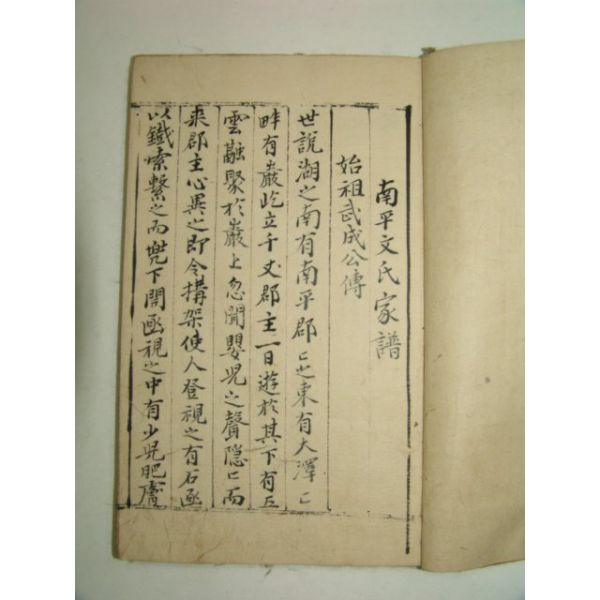 南平文氏家譜
始祖武成公傳
世說湖之南有南平郡〻之東有大澤〻
畔有巖屹立千丈郡主一日遊於其下有五
雲融聚於巖上忽聞嬰児之聲隱〻而
来郡主心異之即令搆架使人登視之有石函
以鐵索繫之而兠下開函視之中有少児肥膚